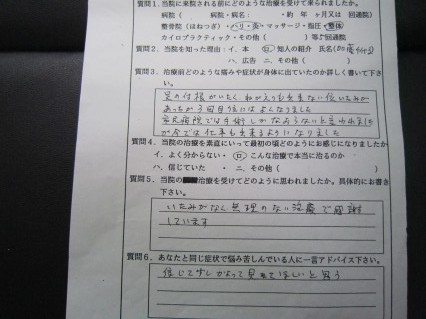 質問1．当院に来院される前にどのような治療を受けて来られましたか。
病院（　　　病院・病名：　　　・約　年　ヶ月又は　回通院）
整骨院（ほねつぎ）・ハリ・灸・マッサージ・指圧・整体
カイロプラクティック・その他（　　　）等で　回通院
質問2．当院を知った理由：イ．本　ロ．知人の紹介　氏名(
ハ．広告　ニ．その他（　　　）
質問3．治療前どのような痛みや症状が身体に出ていたのか詳しく書いて下さい。
足の付根がいたく ねがえりも出来ない位いたみが
あったが3回目位にはよくなりました
市民病院では手術しかなおらないと言われました
が今では仕事も出来るようになりました
質問4．当院の治療を素直にいって最初の頃どのようにお感じになりましたか
イ、よく分からない・　ロ　こんな治療で本当に治るのか
ハ．信じていた　・　ニ．その他（　　　）
質問5．当院の治療を受けてどのように思われましたか。具体的にお書き
下さい。
いたみがなく無理のない治療で感謝
しています
質問6．あなたと同じ症状で悩み苦しんでいる人に一言アドバイス下さい。
信じて少しかよって見てほしいと思う